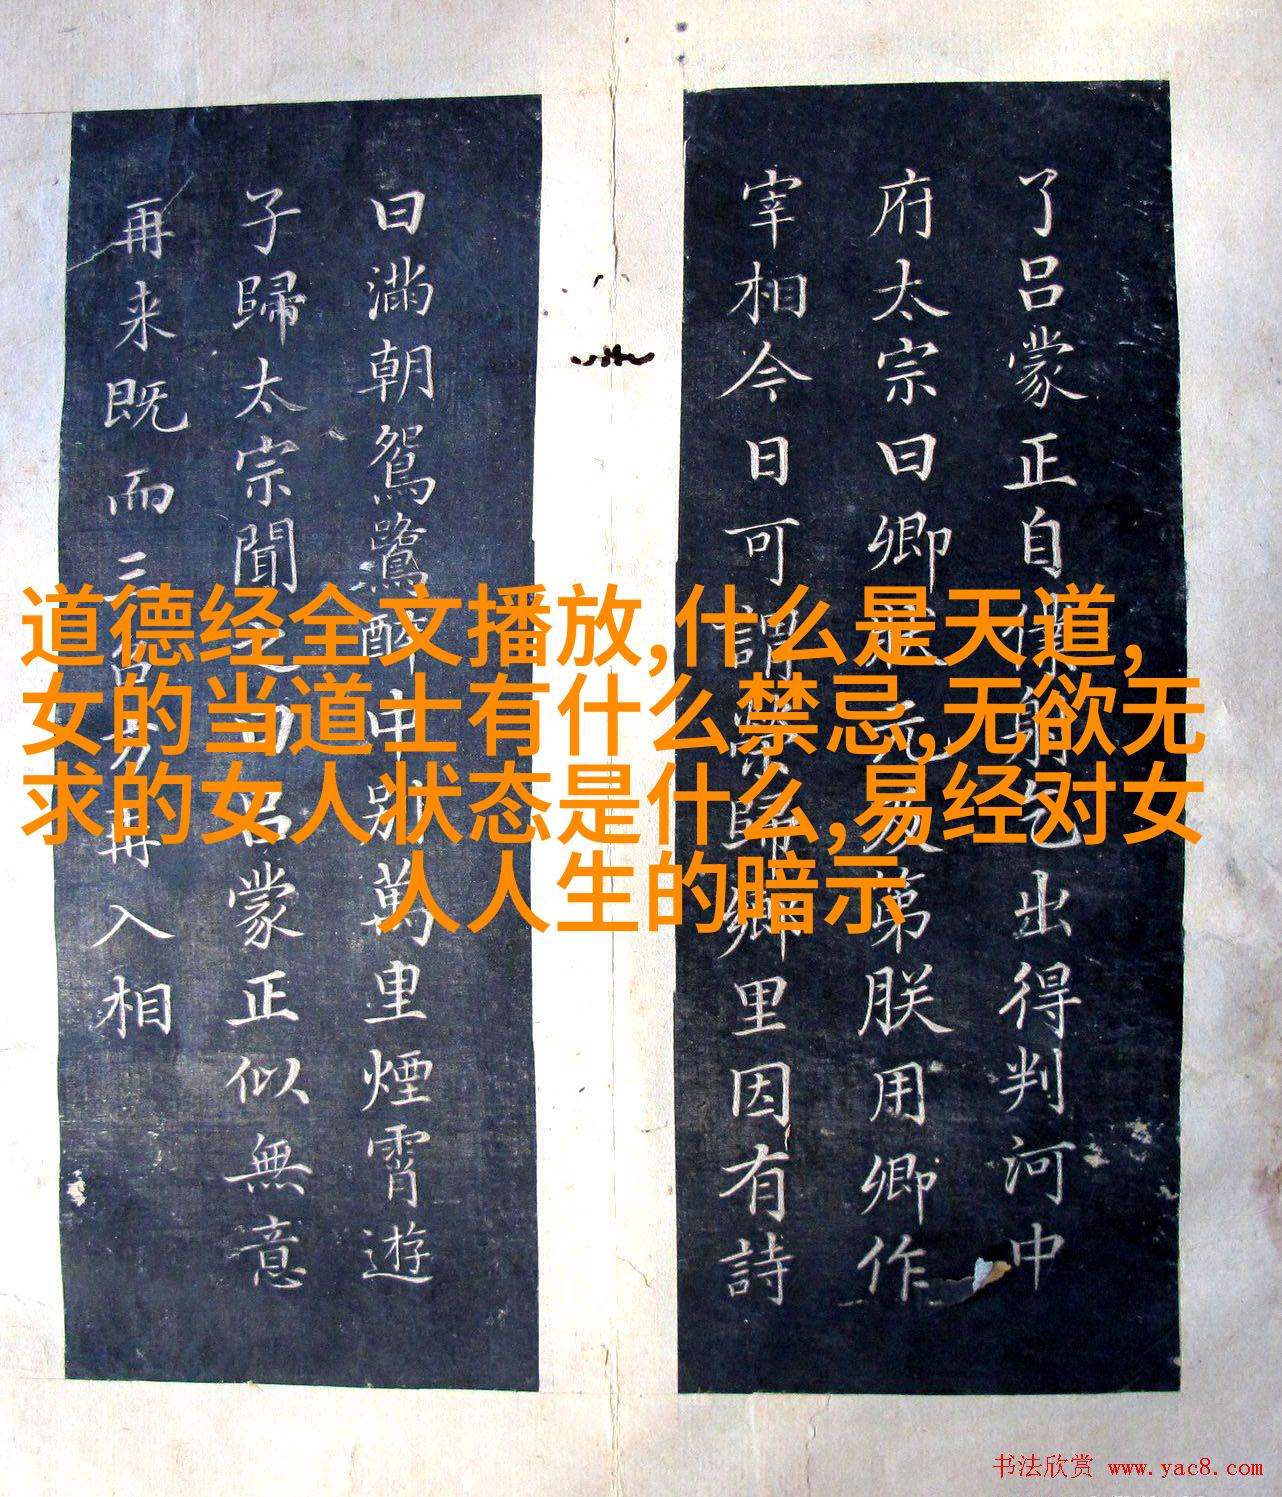 了呂蒙正自 出得判河中
府太宗曰卿狀元及第朕用卿作
宰相今日可謂榮歸鄉里因有詩
曰滿朝鴛鷺醉中別萬里煙霄遊
子歸太宗聞之 呂蒙正似無意
再来既而三 再入相
道德经全文播放,什么是天道,
女的当道士有什么禁忌,无欲无
求的女人状态是什么,易经对女
人人生的暗示
书法欣赏 www.yac8.com